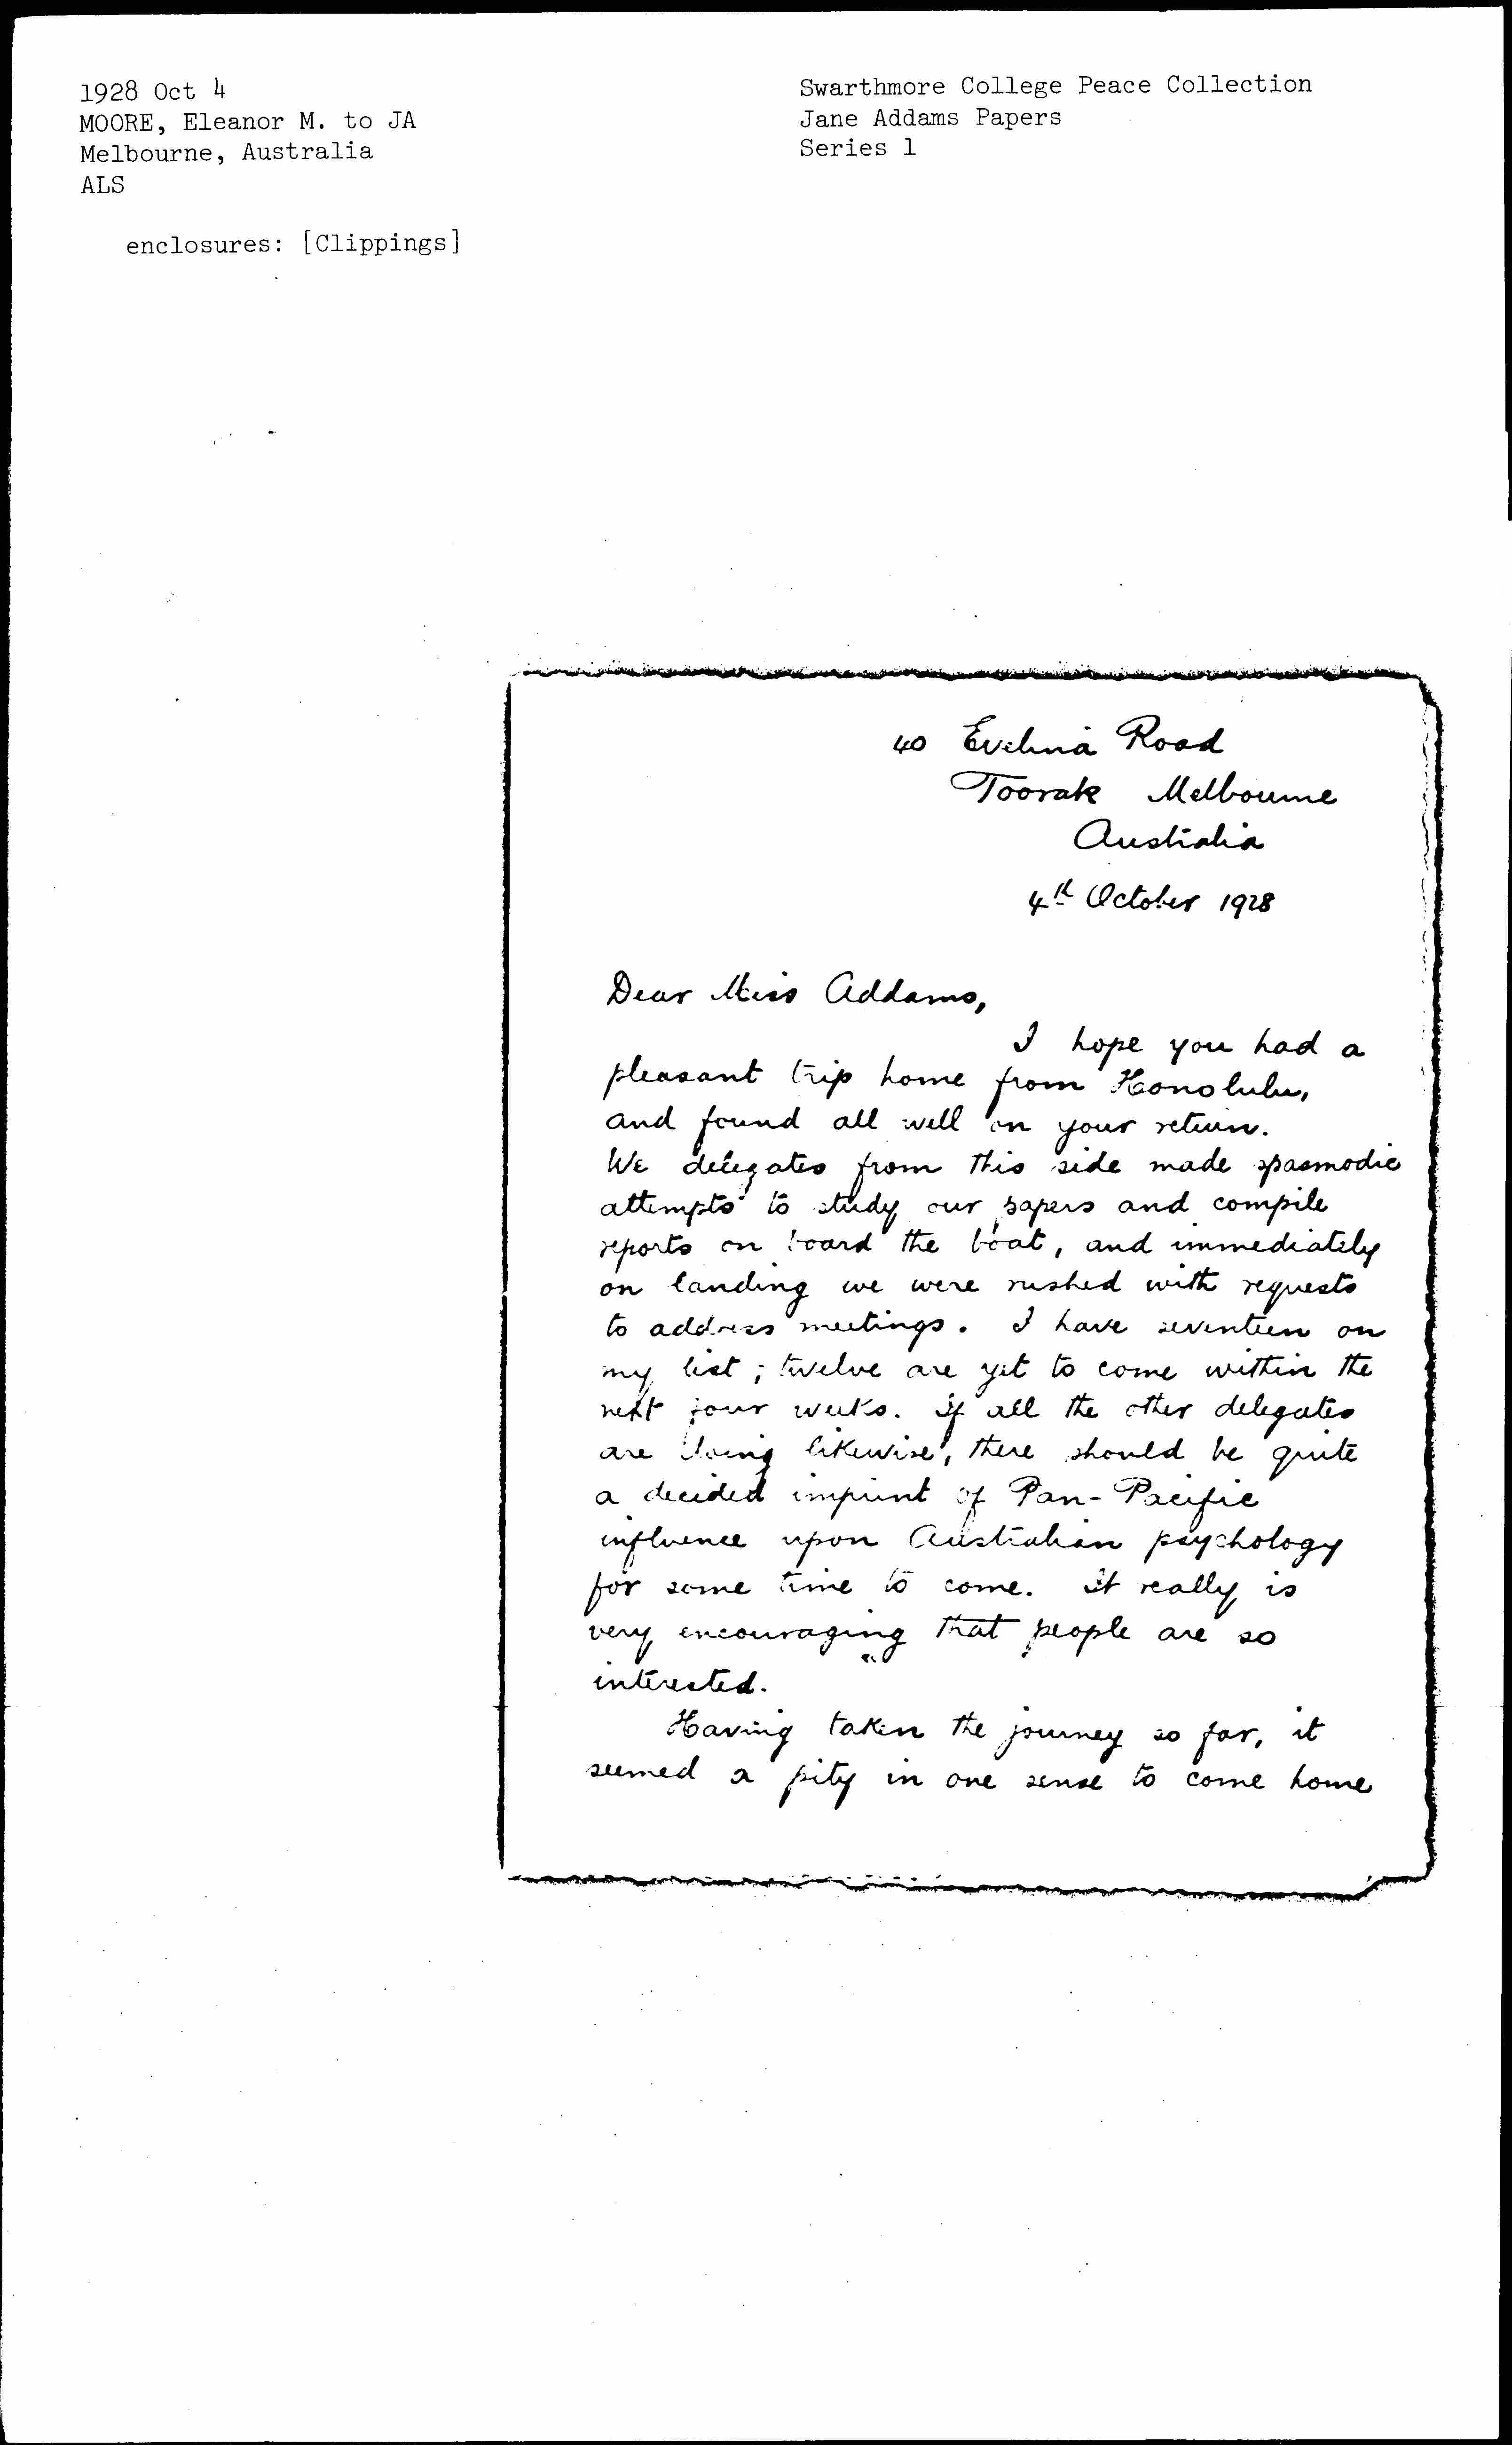 1928 Oct 4
MOORE, Eleanor M. to JA
Melbourne, Australia
ALS
enclosures: [Clippings]
Swarthmore College Peace Collection
Jane Addams Papers
Series 1
40 Evelina Road
Toorak Melbourne
Australia
4th October 1928
Dear Miss Addams,
I hope you had a
pleasant trip home from Honolulu,
and found all well on your return.
We delegates from this side made spasmodic
attempts to study our papers and compile
reports on board the boat, and immediately
on landing we were rushed with requests
to address meetings. I have seventeen on
my list; twelve are yet to come within the
next four weeks. If all the other delegates
are doing likewise, there should be quite
a decided imprint of Pan-Pacific
influence upon Australian psychology
for some time to come. It really is
very encouraging that people are so
interested.
Having taken the journey so far, it
seemed a pity in one sense to come home